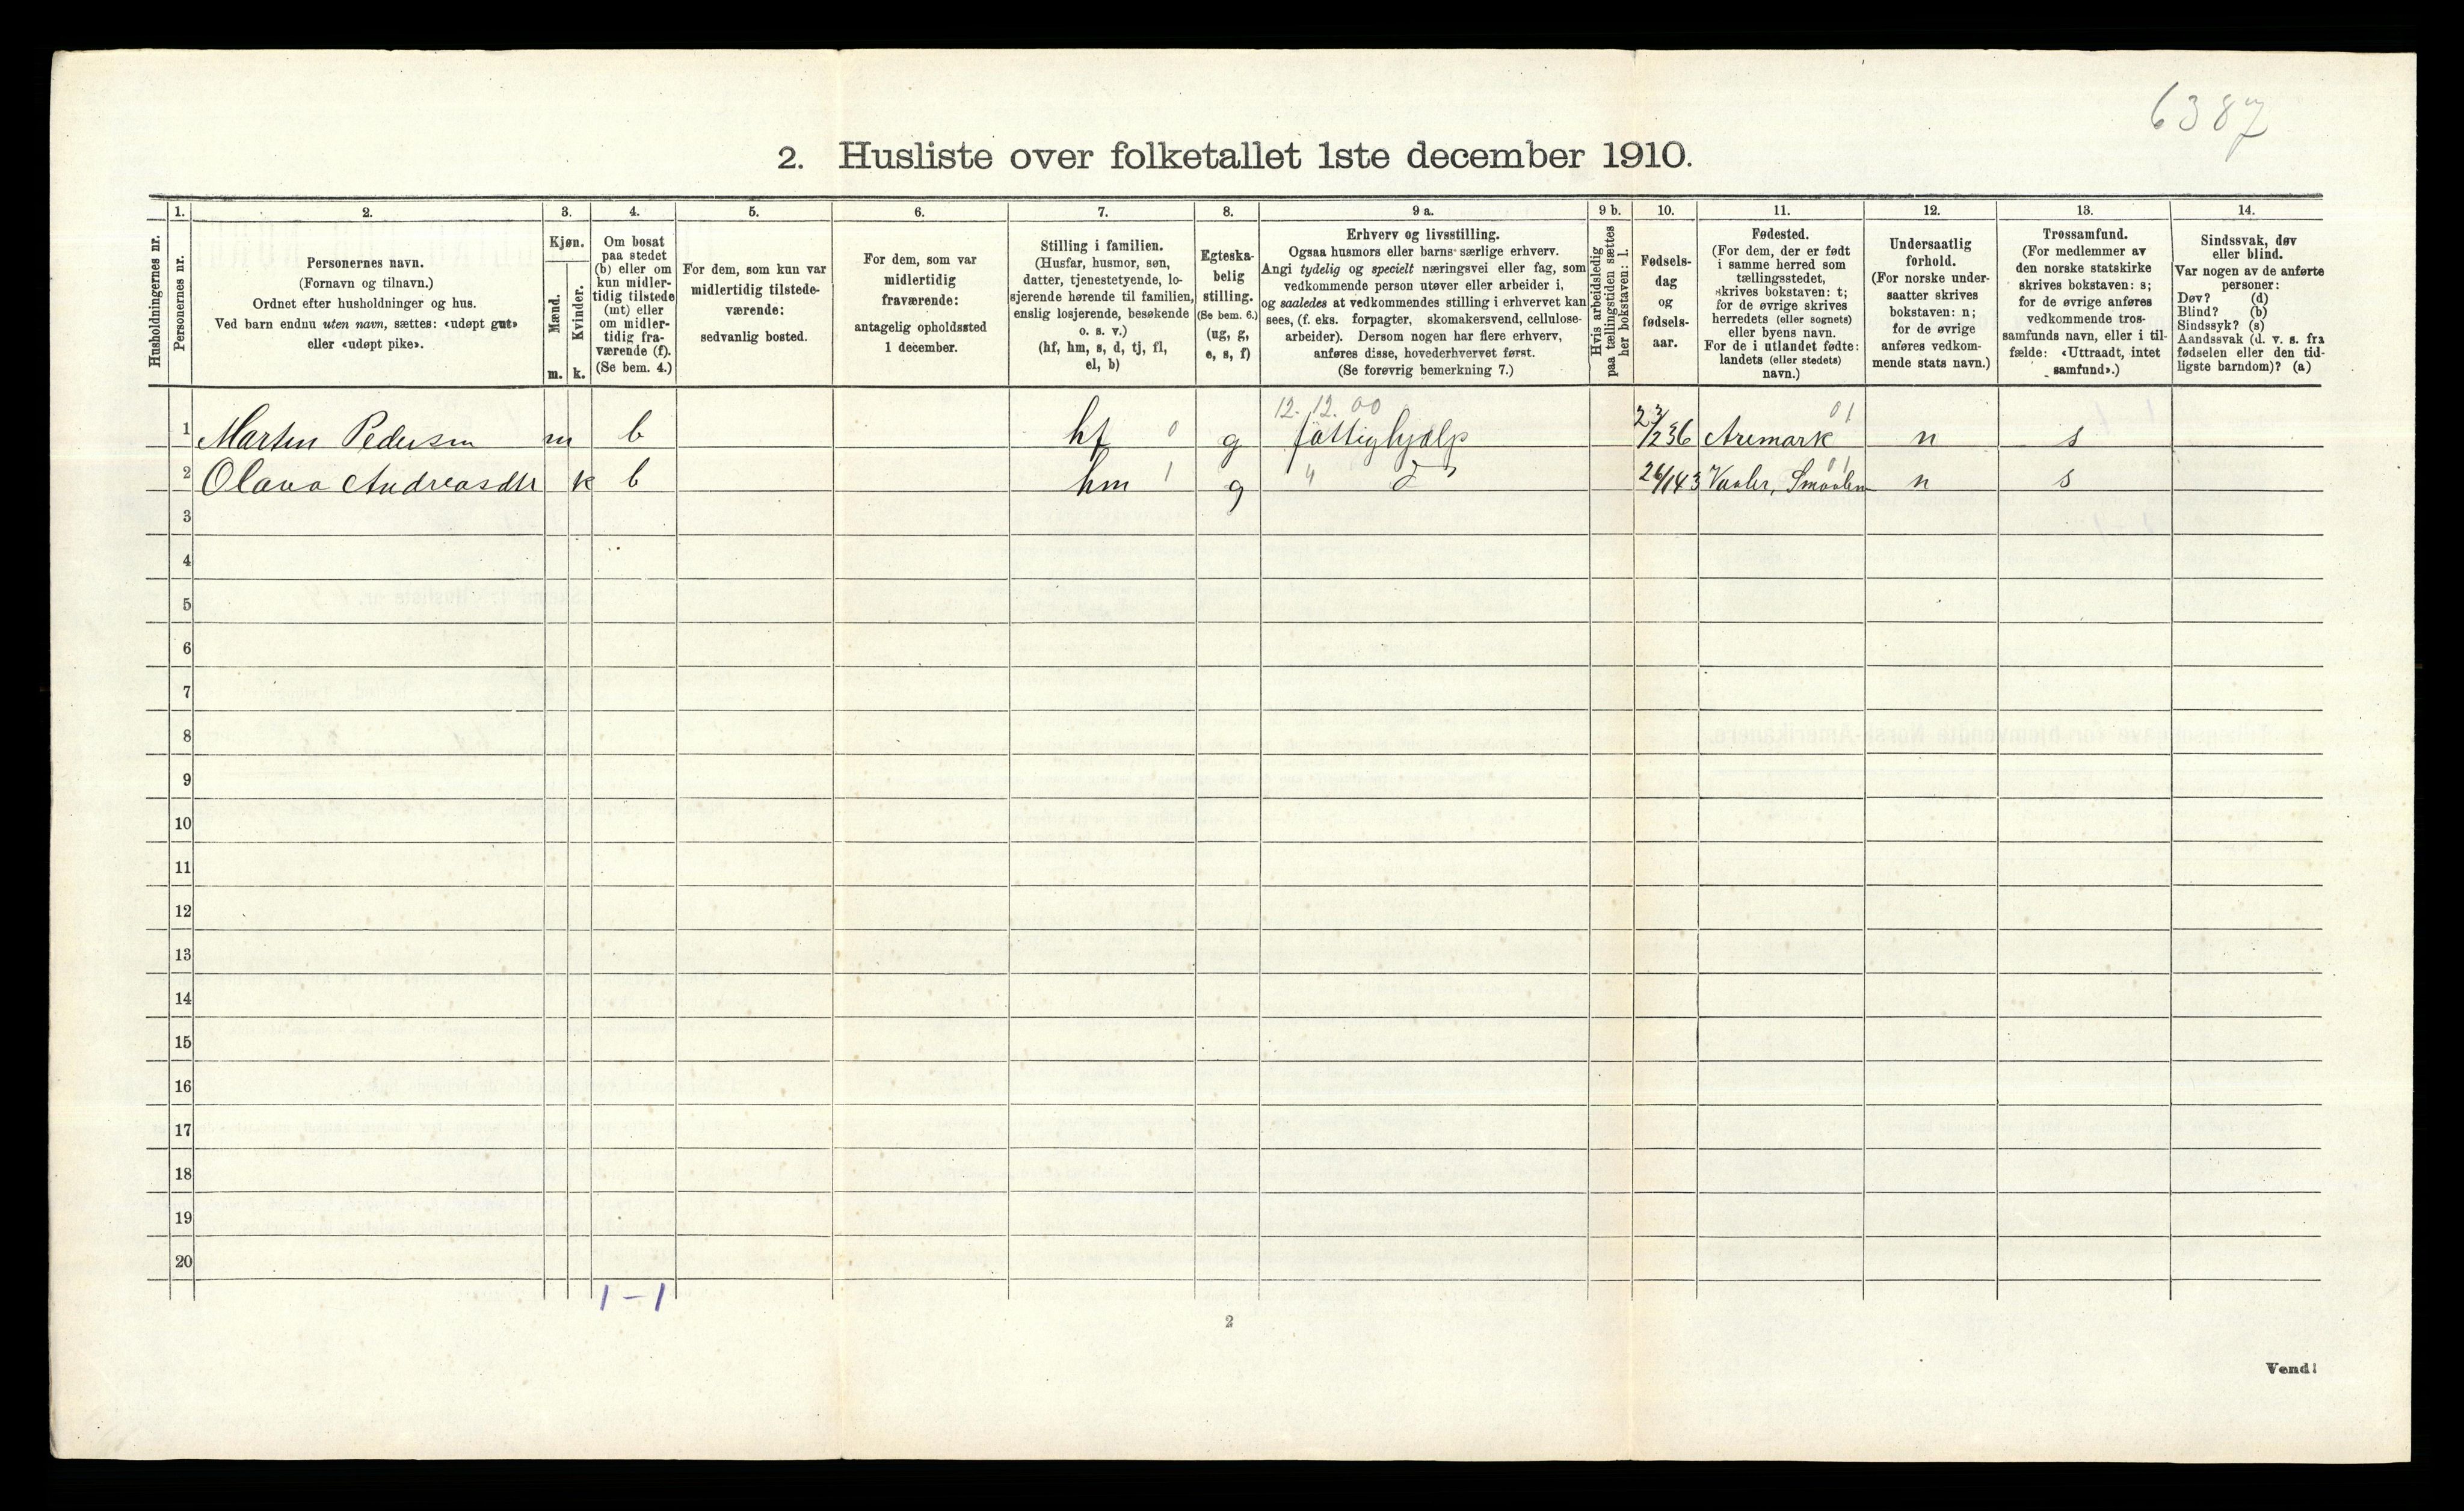 6387
2. Husliste over folketallet 1ste december 1910.
Husholdningernes nr.
1.
Personernes nr.
2.
Personernes navn.
(Fornavn og tilnavn.)
Ordnet efter husholdninger og hus.
Ved barn endnu uten navn, sættes: «udøpt gut»
eller «udøpt pike».
3.
Kjøn.
Mænd.
Kvinder.
m. k.
4.
Om bosat
paa stedet
(b) eller om
kun midler-
tidig tilstede
(mt) eller
om midler-
tidig fra-
værende (f).
(Se bem. 4.)
5.
For dem, som kun var
midlertidig tilstede-
værende:
sedvanlig bosted.
6.
For dem, som var
midlertidig
fraværende:
antagelig opholdssted
1 december.
7.
Stilling i familien.
(Husfar, husmor, søn,
datter, tjenestetyende, lo-
sjerende hørende til familien,
enslig losjerende, besøkende
o. s. v.)
(hf, hm, s, d, tj, fl,
el, b)
8.
Egteska-
belig
stilling.
(Se bem. 6.)
(ug, g,
e, s, f)
9 a.
Erhverv og livsstilling.
Ogsaa husmors eller barns særlige erhverv.
Angi tydelig og specielt næringsvei eller fag, som
vedkommende person utøver eller arbeider i,
og saaledes at vedkommendes stilling i erhvervet kan
sees, (f. eks. forpagter, skomakersvend, cellulose-
arbeider). Dersom nogen har flere erhverv,
anføres disse, hovederhvervet først.
(Se forøvrig bemerkning 7.)
9 b.
Hvis arbeidsledig
paa tællingstiden sættes
her bokstaven: l.
10.
Fødsels-
dag
og
fødsels-
aar.
11.
Fødested.
(For dem, der er født
i samme herred som
tællingsstedet,
skrives bokstaven: t;
for de øvrige skrives
herredets (eller sognets)
eller byens navn.
For de i utlandet fødte:
landets (eller stedets)
navn.)
12.
Undersaatlig
forhold.
(For norske under-
saatter skrives
bokstaven: n;
for de øvrige
anføres vedkom-
mende stats navn.)
13.
Trossamfund.
(For medlemmer av
den norske statskirke
skrives bokstaven: s;
for de øvrige anføres
vedkommende tros-
samfunds navn, eller i til-
fælde: «Uttraadt, intet
samfund».)
14.
Sindssvak, døv
eller blind.
Var nogen av de anførte
personer:
Døv? (d)
Blind? (b)
Sindssyk? (s)
Aandssvak (d. v. s. fra
fødselen eller den tid-
ligste barndom)? (a)
12. 12. 00 01
1 Martin Pedersen m b hf 0 g fattighjælp 36 Aremark n s
2 Olava Andreasdtr k b hm 1 g " do 26/1 43 Vaaler, Smaalen 01 n s
3
4
5
6
7
8
9
10
11
12
13
14
15
16
17
18
19
20
1 – 1
2
Vend!